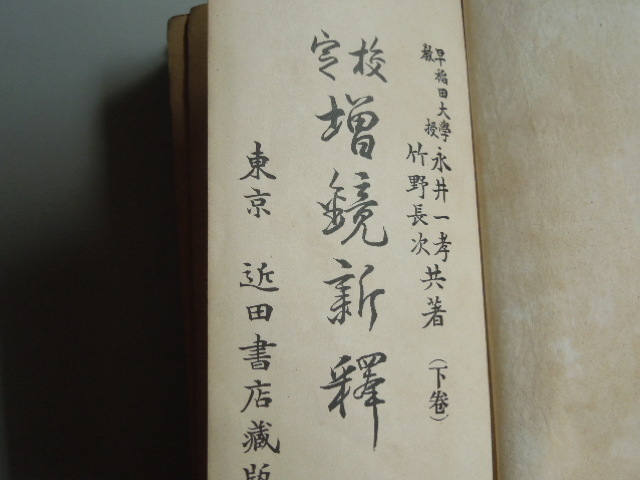 早稲田大學教授
永井一孝
竹野長次
共著
(下卷)
校定
增鏡新釋
東京 近田書店藏版